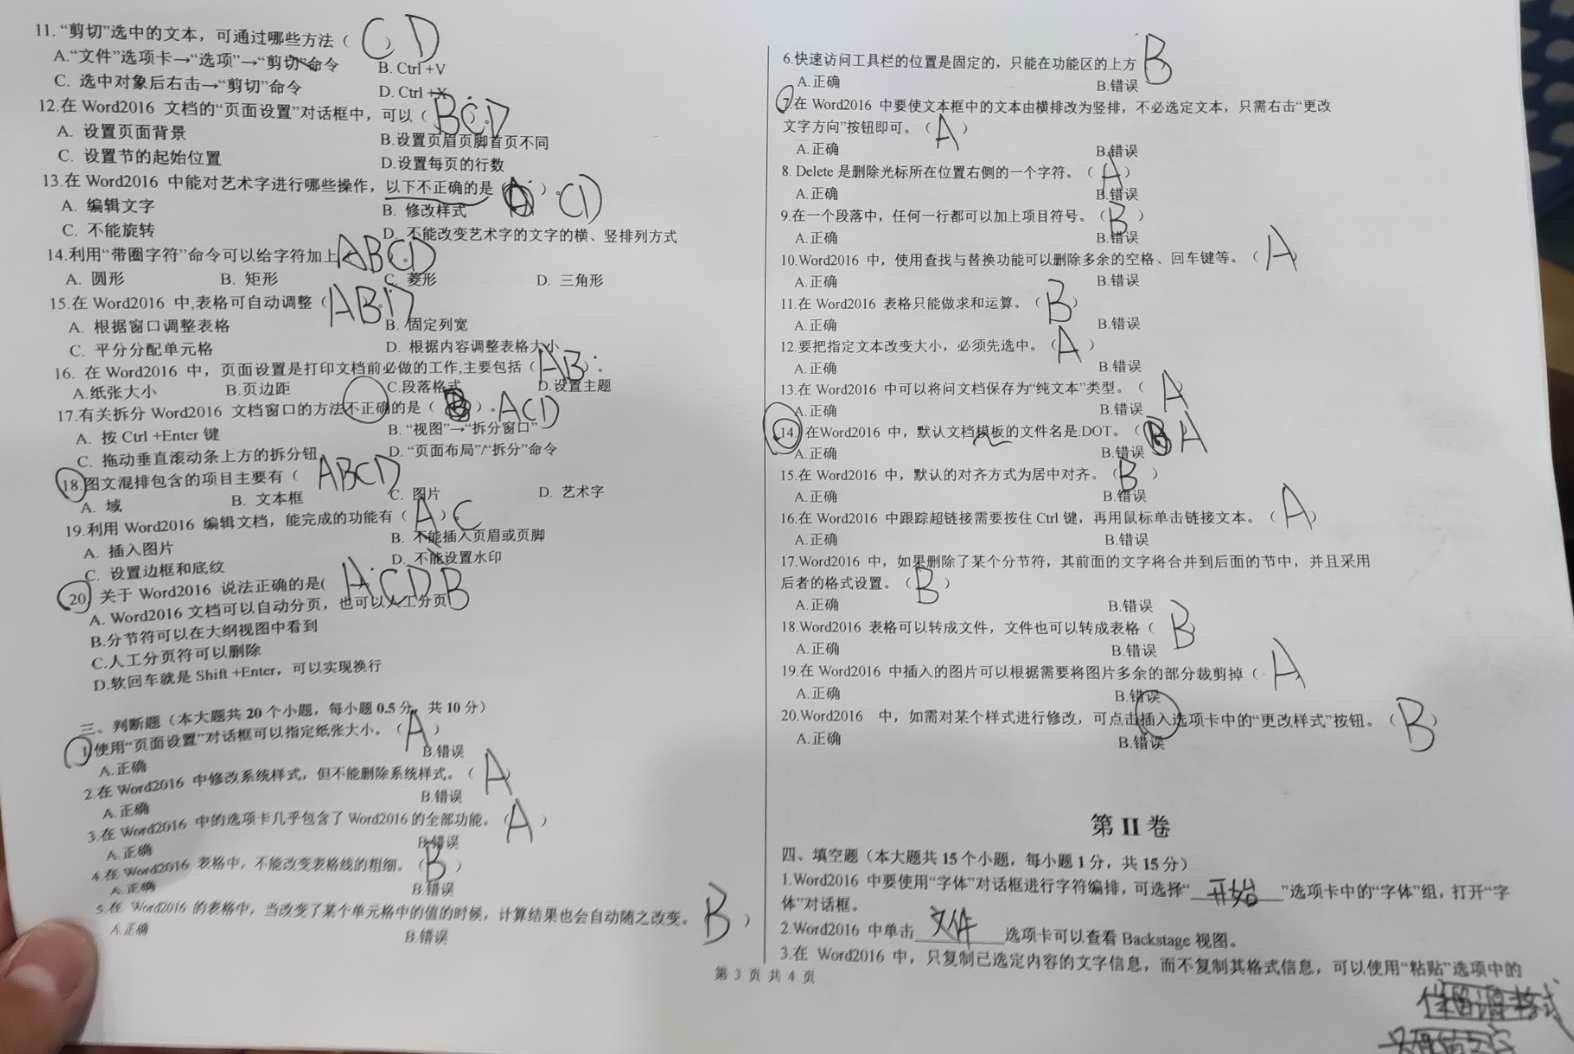 11. “剪切”选中的文本，可通过哪些方法（ CD
A.“文件”选项卡→“选项”→“剪切”命令 B. Ctrl +V
C. 选中对象后右击→“剪切”命令 D. Ctrl +X
12.在 Word2016 文档的“页面设置”对话框中，可以（ BCD
A. 设置页面背景 B.设置页眉页脚首页不同
C. 设置节的起始位置 D.设置每页的行数
13.在 Word2016 中能对艺术字进行哪些操作，以下不正确的是（ ）。CD
A. 编辑文字 B. 修改样式
C. 不能旋转 D. 不能改变艺术字的文字的横、竖排列方式
14.利用“带圈字符”命令可以给字符加上 ABCD
A. 圆形 B. 矩形 C. 菱形 D. 三角形
15.在 Word2016 中,表格可自动调整（ ABD
A. 根据窗口调整表格 B. 固定列宽
C. 平分分配单元格 D. 根据内容调整表格大小
16. 在 Word2016 中，页面设置是打印文档前必做的工作,主要包括（ AB ）。
A.纸张大小 B.页边距 C.段落格式 D.设置主题
17.有关拆分 Word2016 文档窗口的方法不正确的是（ ）。ACD
A. 按 Ctrl +Enter 键 B. “视图”→“拆分窗口”
C. 拖动垂直滚动条上方的拆分钮 D. “页面布局”/“拆分”命令
18.图文混排包含的项目主要有（ ABCD
A. 域 B. 文本框 C. 图片 D. 艺术字
19.利用 Word2016 编辑文档，能完成的功能有（ A ）。C
A. 插入图片 B. 不能插入页眉或页脚
C. 设置边框和底纹 D. 不能设置水印
20. 关于 Word2016 说法正确的是( ACDB
A. Word2016 文档可以自动分页，也可以人工分页
B.分节符可以在大纲视图中看到
C.人工分页符可以删除
D.软回车就是 Shift +Enter，可以实现换行
三、判断题（本大题共 20 个小题，每小题 0.5 分，共 10 分）
1.使用“页面设置”对话框可以指定纸张大小。（ A ）
A.正确 B.错误
2.在 Word2016 中修改系统样式，但不能删除系统样式。（ A
A.正确 B.错误
3.在 Word2016 中的选项卡几乎包含了 Word2016 的全部功能。（ A ）
A.正确 B.错误
4.在 Word2016 表格中，不能改变表格线的粗细。（ B ）
A.正确 B.错误
5.在 Word2016 的表格中，当改变了某个单元格中的值的时候，计算结果也会自动随之改变。 B ）
A.正确 B.错误
6.快速访问工具栏的位置是固定的，只能在功能区的上方 B
A.正确 B.错误
7.在 Word2016 中要使文本框中的文本由横排改为竖排，不必选定文本，只需右击“更改
文字方向”按钮即可。（ A ）
A.正确 B.错误
8. Delete 是删除光标所在位置右侧的一个字符。（ A ）
A.正确 B.错误
9.在一个段落中，任何一行都可以加上项目符号。（ B ）
A.正确 B.错误
10.Word2016 中，使用查找与替换功能可以删除多余的空格、回车键等。（ A
A.正确 B.错误
11.在 Word2016 表格只能做求和运算。（ B ）
A.正确 B.错误
12.要把指定文本改变大小，必须先选中。（ A ）
A.正确 B.错误
13.在 Word2016 中可以将问文档保存为“纯文本”类型。（ A
A.正确 B.错误
14. 在Word2016 中，默认文档模板的文件名是.DOT。（ A
A.正确 B.错误
15.在 Word2016 中，默认的对齐方式为居中对齐。（ B ）
A.正确 B.错误
16.在 Word2016 中跟踪超链接需要按住 Ctrl 键，再用鼠标单击链接文本。（ A ）
A.正确 B.错误
17.Word2016 中，如果删除了某个分节符，其前面的文字将合并到后面的节中，并且采用
后者的格式设置。（ B ）
A.正确 B.错误
18.Word2016 表格可以转成文件，文件也可以转成表格（ B
A.正确 B.错误
19.在 Word2016 中插入的图片可以根据需要将图片多余的部分裁剪掉（ A
A.正确 B.错误
20.Word2016 中，如需对某个样式进行修改，可点击插入选项卡中的“更改样式”按钮。（ B ）
A.正确 B.错误
第 II 卷
四、填空题（本大题共 15 个小题，每小题 1 分，共 15 分）
1.Word2016 中要使用“字体”对话框进行字符编排，可选择“ 开始 ”选项卡中的“字体”组，打开“字
体”对话框。
2.Word2016 中单击 文件 选项卡可以查看 Backstage 视图。
3.在 Word2016 中，只复制已选定内容的文字信息，而不复制其格式信息，可以使用“粘贴”选项中的
第 3 页 共 4 页